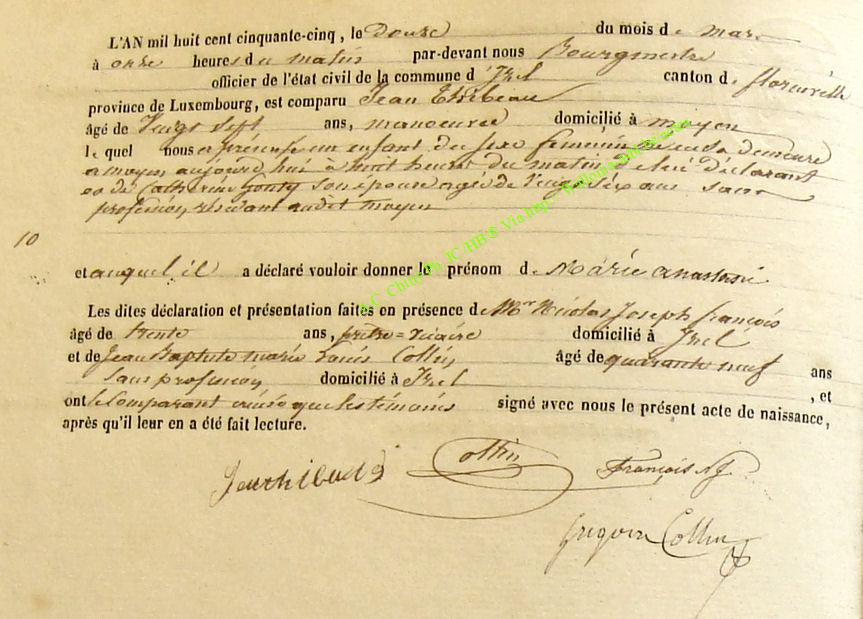 L'AN mil huit cent cinquante-cinq, le Douze du mois de mars
à onze heures du matin par-devant nous Bourgmestre
officier de l'état civil de la commune d'Izel canton de florenville
province de Luxembourg, est comparu Jean Thibeau
âgé de Vingt Sept ans, manoeuvre domicilié à moyen
le quel nous a présenté un enfant du sexe feminin né en sa demeure
a moyen aujourd'hui à huit heures du matin de lui déclarant
et de Catherine Gonty son épouse agée de Vingt Six ans sans
profession, résidant audit moyen
10
et auquel il a déclaré vouloir donner le prénom de Marie anastasi
Les dites déclaration et présentation faites en présence de Mr Nicolas Joseph françois
âgé de trente ans, prêtre=vicaire domicilié à Izel
et de Jean Baptiste marie Collin âgé de quarante neuf ans
sans profession, domicilié à Izel , et
ont le Comparant ainsi que les témoins signé avec nous le présent acte de naissance,
après qu'il leur en a été fait lecture.
Collin
françois NJ
Grégoire Collin